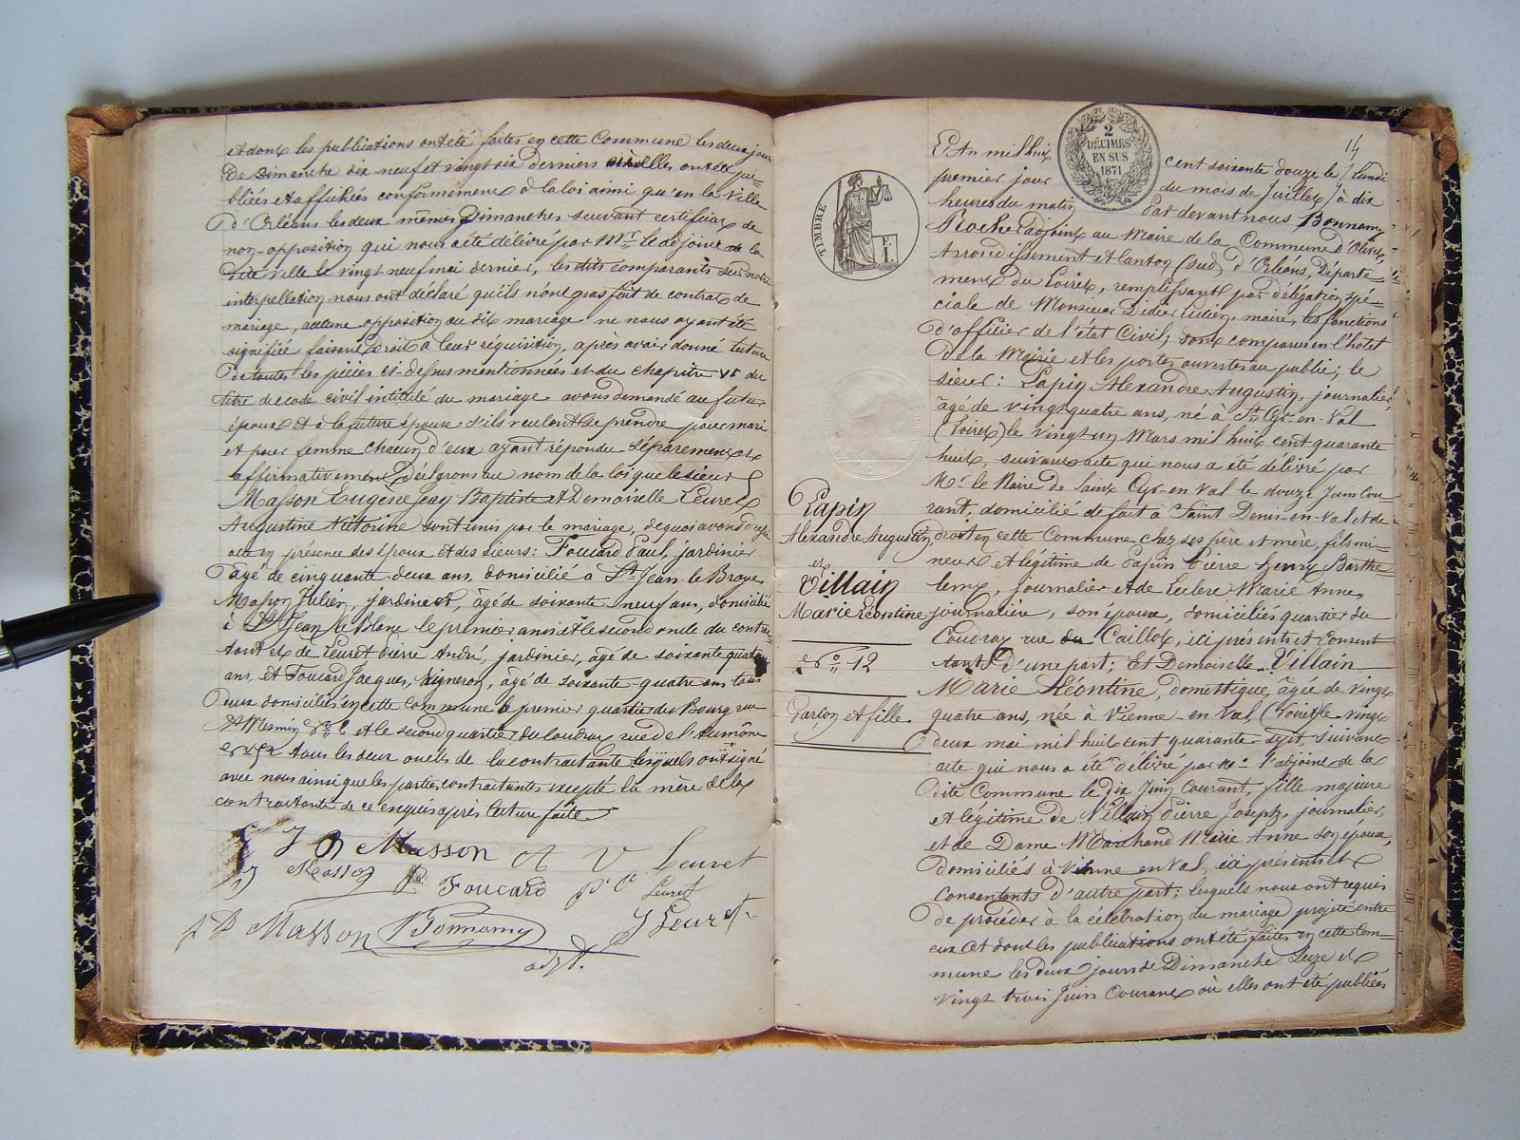 et dont les publications ont été faites en cette Commune les deux jours
de Dimanche dix neuf et vingt six derniers où elles ont été pu-
bliées et affichées conformément à la loi ainsi qu'en la Ville
d'Orléans les deux mêmes Dimanches suivant certificat de
non-opposition qui nous a été délivré par Mr le adjoint de la
dite ville le vingt neuf mai dernier, les dits comparants sur notre
interpellation nous ont déclaré qu'ils n'ont pas fait de contrat de
mariage, aucune opposition au dit mariage ne nous ayant été
signifiée faisant droit à leur réquisition, après avoir donné lecture
de toutes les pièces ci-dessus mentionnées et du chapitre VI du
titre du code civil intitulé du mariage avons demandé au futur
époux et à la future épouse s'ils veulent se prendre pour mari
et pour femme chacun d'eux ayant répondu séparément et
affirmativement déclarons au nom de la loi que le sieur
Masson Eugène Jean Baptiste et Demoiselle Leuret
Augustine Victorine sont unis par le mariage, de quoi avons dressé
acte en présence des époux et des sieurs: Foucard Paul, jardinier
âgé de cinquante deux ans, domicilié à St Jean le Braye
Masson Julien, jardinier, âgé de soixante neuf ans, domicilié
à St Jean le Blanc le premier ami et le second oncle du contrac
tant et de Leuret Pierre André, jardinier, âgé de soixante quatre
ans, et Foucard Jacques, vigneron, âgé de soixante-quatre ans tous
deux domiciliés en cette commune le premier quartier du Bourg rue
St Mesmin et le second quartier du Coudray rue de l'Aumône
tous les deux oncles de la contractante lesquels ont signé
avec nous ainsi que les parties contractantes excepté la mère de la
contractante de ce enquis après lecture faite
J B Masson A V Leuret
Masson Foucard Leuret
Masson Bonnamy J Leuret
adjt.
14
TIMBRE
2
DÉCIMES
EN SUS
1871
Papin
Alexandre Augustin
et
Villain
Marie Léontine
No 12
Garçon et fille
L'An mil huit cent soixante douze le Lundi
premier jour du mois de Juillet, à dix
heures du matin Par devant nous Bonnamy
Roche adjoint au Maire de la Commune d'Olivet,
Arrondissement et Canton (sud) d'Orléans, Départe-
ment du Loiret, remplissant par délégation spé-
ciale de Monsieur Didier Lucien, maire, les fonctions
d'officier de l'état Civil; sont comparus en l'hôtel
de la Mairie et les portes ouvertes au public; le
sieur: Papin Alexandre Augustin, journalier,
âgé de vingt quatre ans, né à St Cyr-en-Val
(Loiret) le vingt un Mars mil huit cent quarante
huit, suivant acte qui nous a été délivré par
Mr le Maire de Saint Cyr-en-Val le douze Juin Cou-
rant, domicilié de fait à Saint Denis-en-Val et de
droit en cette Commune chez ses père et mère, fils mi-
neur et légitime de Papin Pierre Henry Barthe-
lemy, journalier et de Leclerc Marie Anne,
journalière, son épouse, domiciliés quartier du
Coudray rue du Caillot, ici présents et consen-
tants d'une part: Et Demoiselle Villain
Marie Léontine, domestique, âgée de vingt
quatre ans, née à Vienne-en-Val (Loiret) le vingt
deux mai mil huit cent quarante-sept, suivant
acte qui nous a été délivré par Mr l'adjoint de la
dite Commune le dix Juin Courant, fille majeure
et légitime de Villain Pierre Joseph, journalier,
et de Dame Marchand Marie Anne son épouse,
domiciliés à Vienne en Val, ici présents et
Consentants d'autre part; lesquels nous ont requis
de procéder à la célébration du mariage projeté entre
eux et dont les publications ont été faites en cette Com-
mune les deux jours de Dimanche Seize et
vingt trois Juin Courant où elles ont été publiées